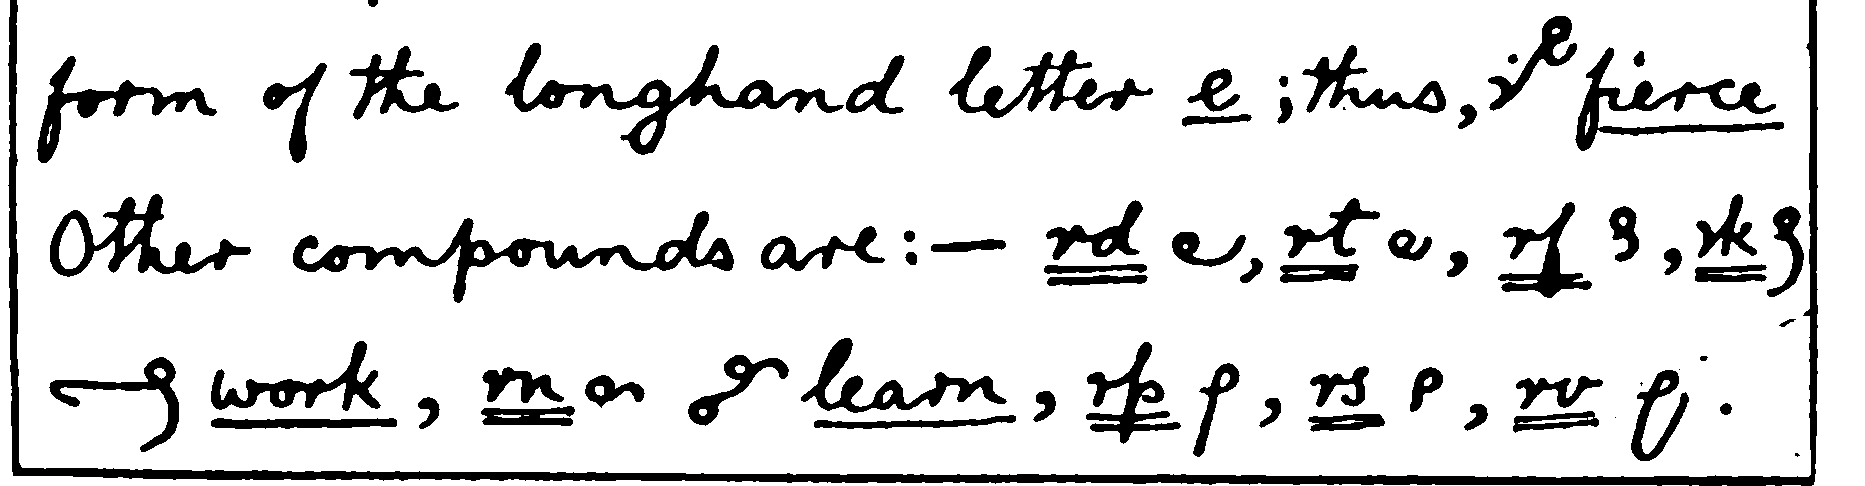 form of the longhand letter e ; thus, fierce
Other compounds are:— rd , rt , rf , rk
work , rn learn , rp , rs , rv .